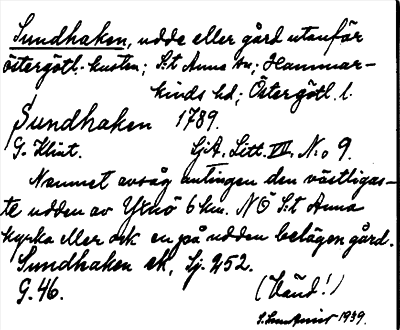 Sundhaken, udde eller gård utanför
östergötl. kusten; S:t Anna sn; Hammar-
kinds hd; Östergötl. l.
Sundhaken 1789.
G. Klint. SjA. Litt. VII, No 9.
Namnet avsåg antingen den västligas-
te udden av Yxnö 6 km. NÖ S:t Anna
kyrka eller ock en på udden belägen gård.
Sundhaken ek, Sj. 252.
G. 46. (Vänd!)
1939.